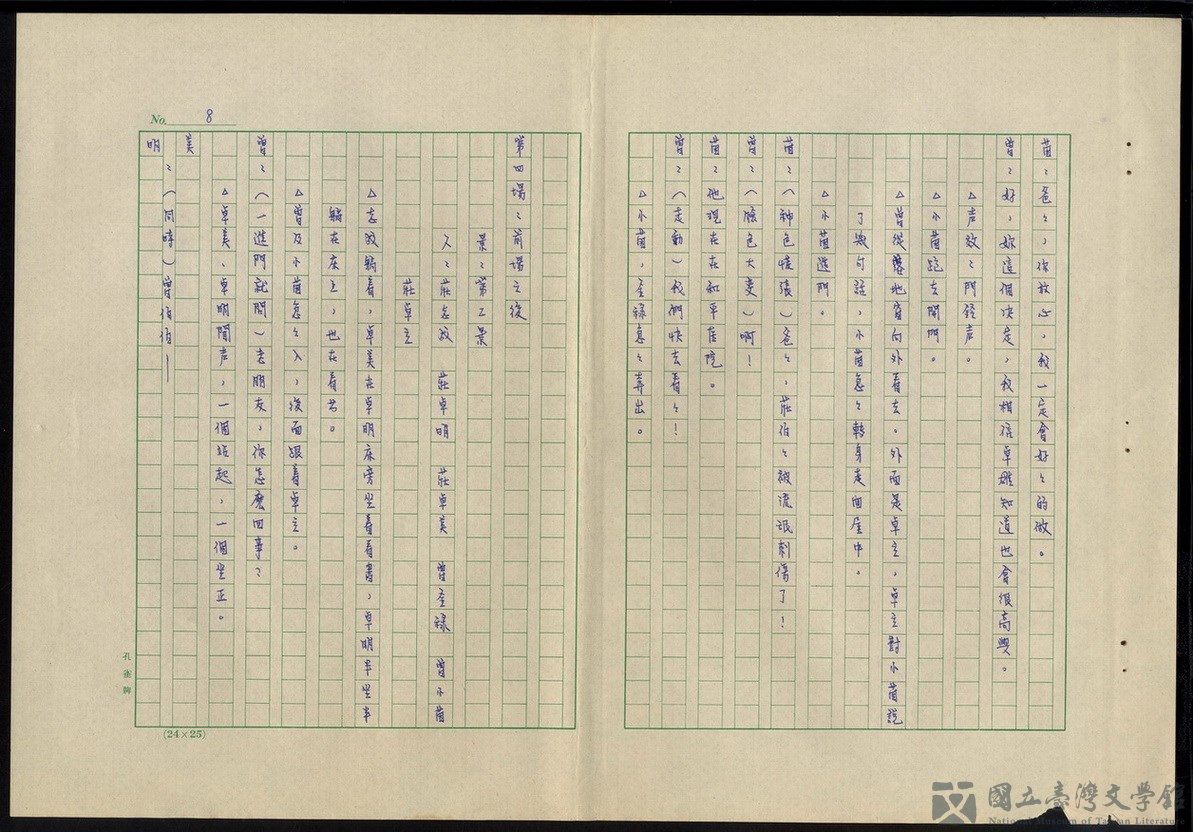 茵：爸々，你放心，我一定會好々的做。
曾：好，妳這個決定，我相信卓雄知道也會很高興。
△声效：門鈴声。
△小茵跑去開門。
△曾從落地窗向外看去。外面是卓立，卓立對小茵說
了幾句話，小茵急々轉身走回屋中。
△小茵進門。
茵：（神色慌張）爸々，莊伯々被流氓刺傷了！
曾：（臉色大變）啊！
茵：他現在在和平醫院。
曾：（走動）我們快去看々！
△小茵，奎祿急々奔出。
No. 8
第四場：前場之後
景：第二景
人：莊志毅 莊卓明 莊卓美 曾奎祿 曾小茵
莊卓立
△志毅躺着，卓美在卓明床旁坐着看書，卓明半坐半
躺在床上，也在看書。
△曾及小茵急々入，後面跟着卓立。
曾：（一進門就問）老朋友，你怎麼回事？
△卓美、卓明聞声，一個站起，一個坐正。
美
明：（同時）曾伯伯—
孔雀牌
(24×25)
國立臺灣文學館
National Museum of Taiwan Literature